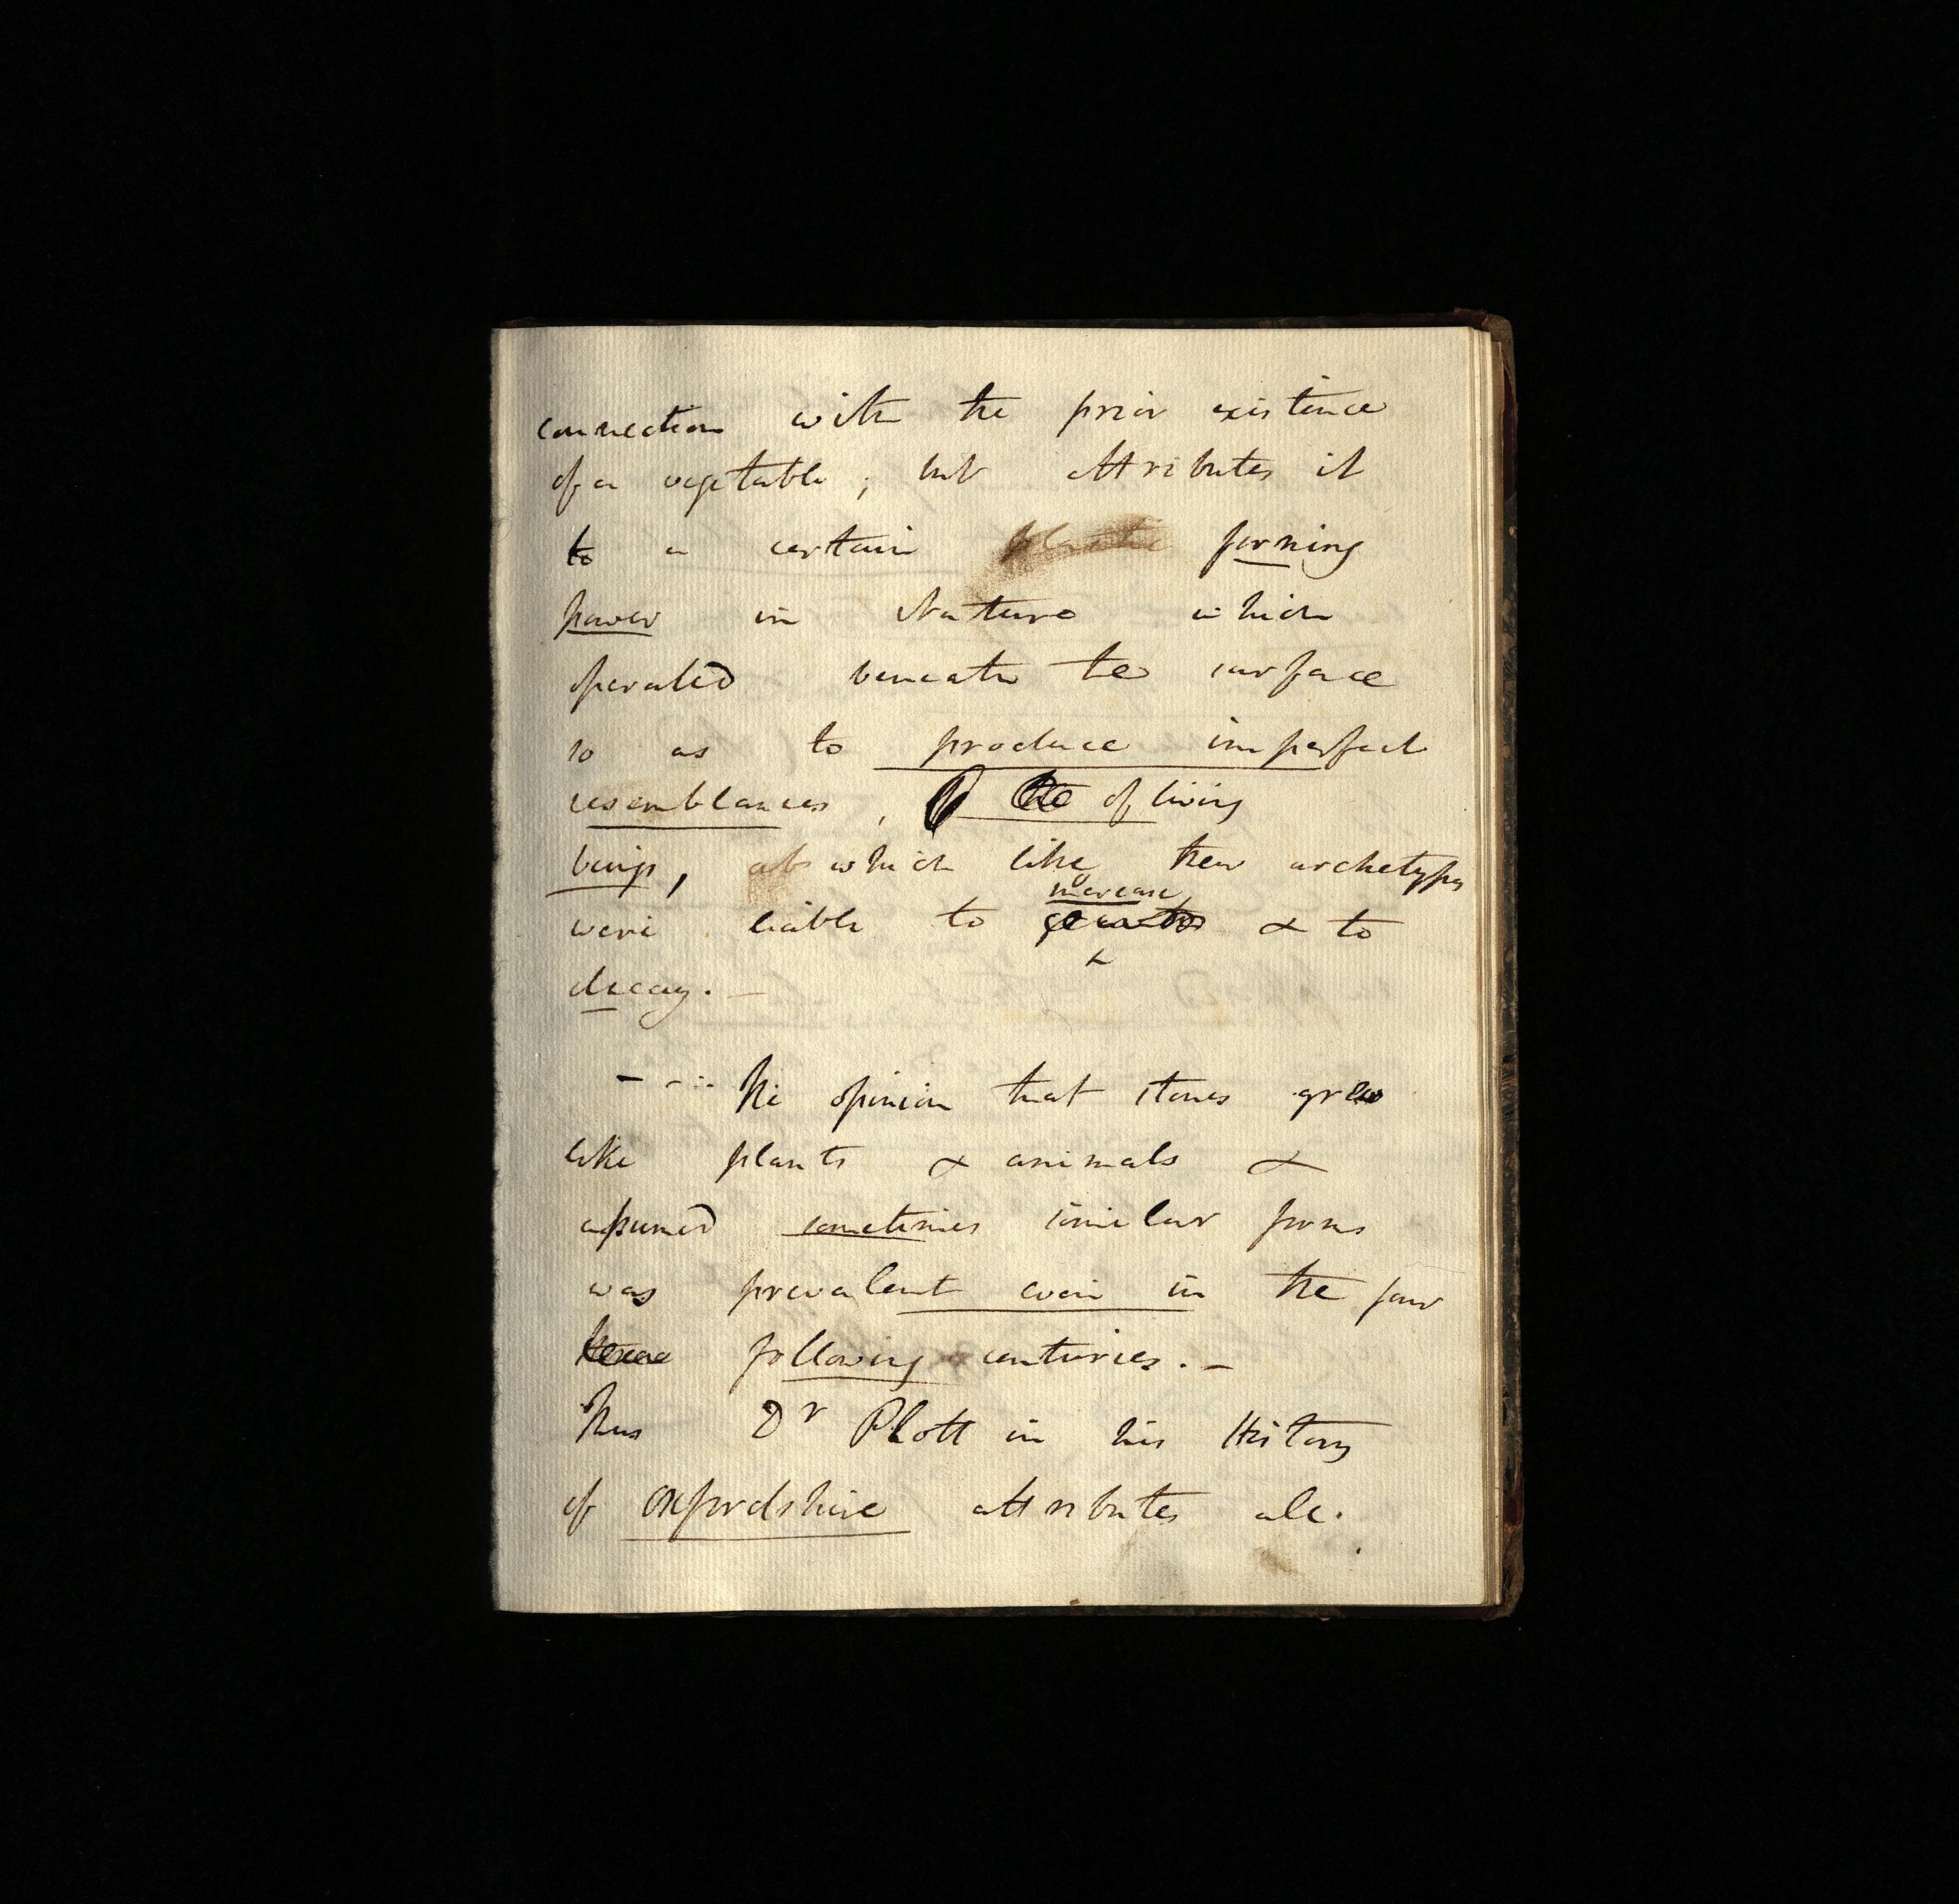 connection with the prior existence
of a vegetable; but attributes it
to a certain plastic forming
power in Nature which
operated beneath the surface
so as to produce imperfect
resemblances, of living
beings, which like their archetypes
increase
were liable to growth & to
decay. —
— The opinion that stones grew
like plants & animals &
assumed sometimes similar forms
was prevalent even in the four
following centuries. —
Thus Dr Plott in his History
of Oxfordshire attributes all.